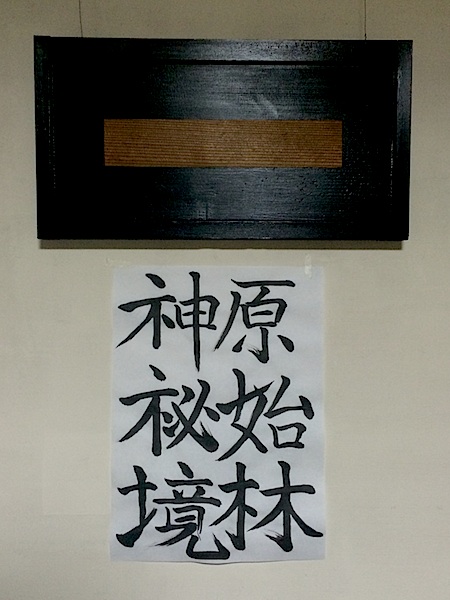 原始林
神祕境